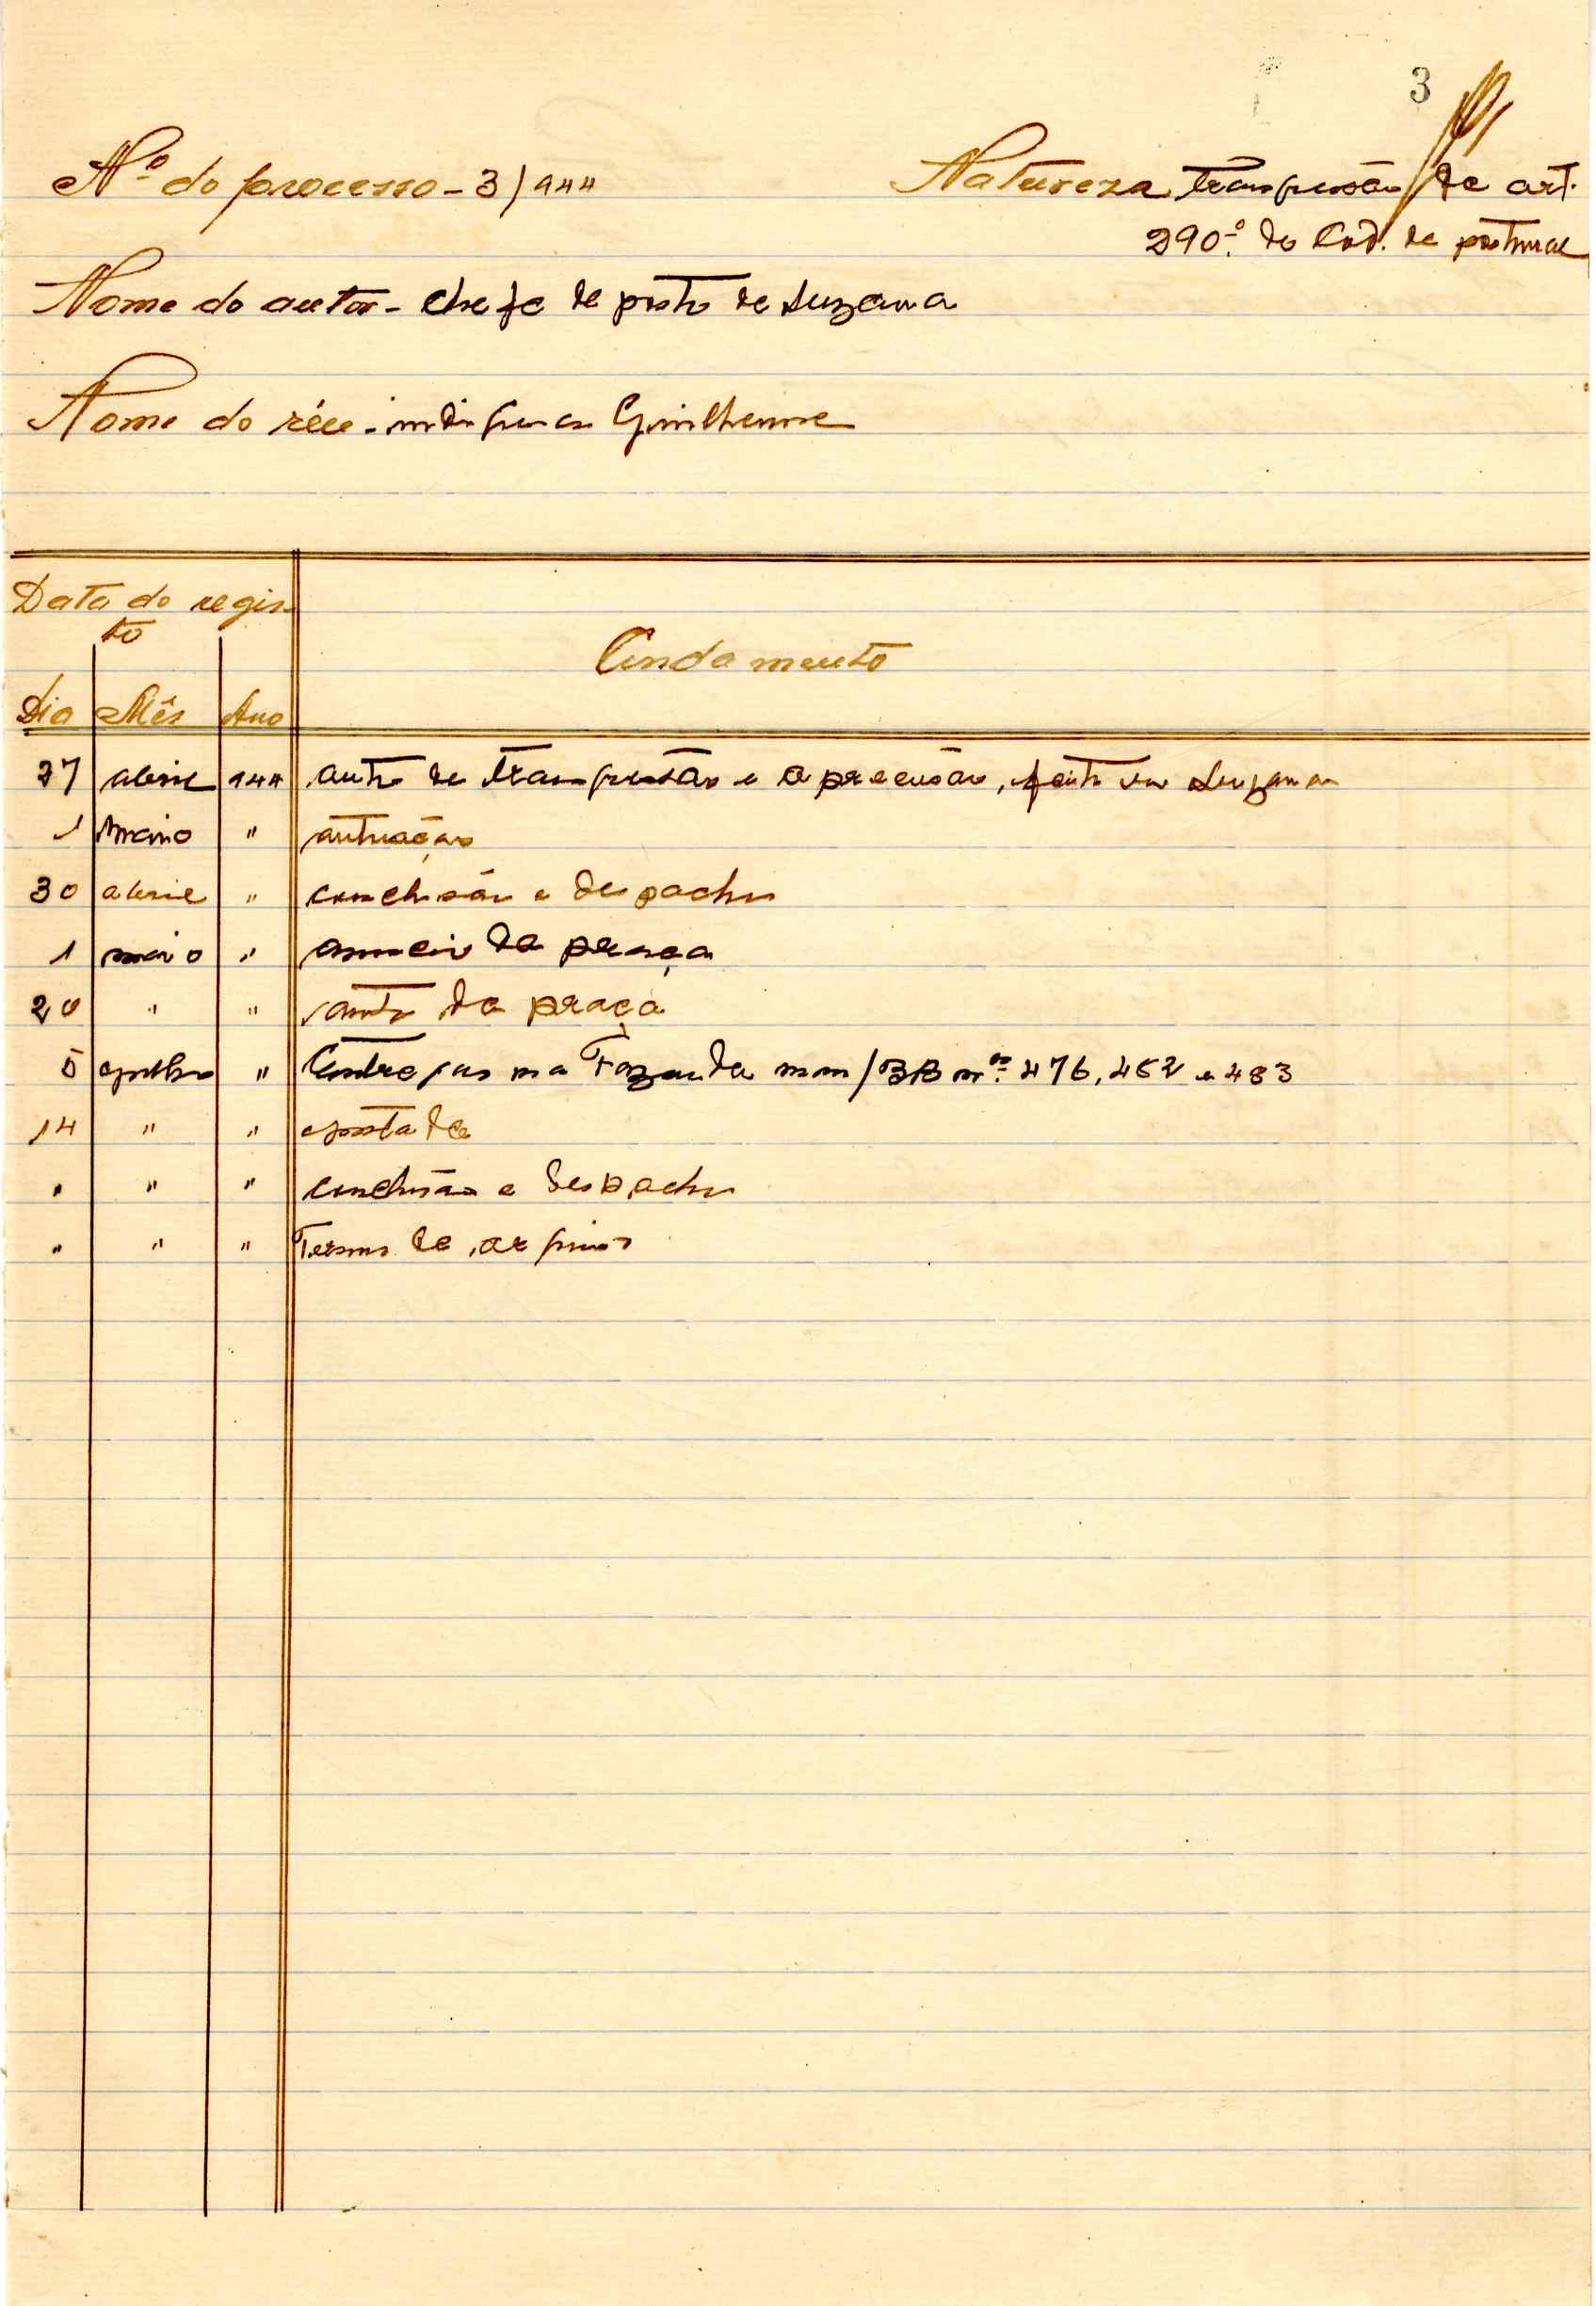 3
Nº do processo - 3/944
Natureza transgressão de art.
290.º do Cod. de postural
Nome do autor - Chefe de posto de Suzana
Nome do réu - indígena Guilherme
Data do regis-
to
Andamento
Dia Mês Ano
27 abril 944 auto de transgressão e apreensão, feito em Suzana
1 maio " autuação
30 abril " conclusão e despacho
1 maio " anuncio da praça
20 " " auto da praça
5 " Entregas na Fazenda nos m/BB nºs 476, 482 e 483
14 " " juntada
" " " conclusão e despacho
" " " Termo de arquivo